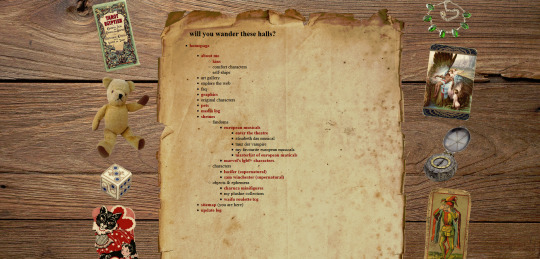 TAROT
EGYPTIEN
will you wander these halls?
homepage
about me
kins
comfort characters
self-ships
art gallery
explore the web
faq
graphics
original characters
pets
media log
shrines
fandoms
european musicals
enter the theatre
elisabeth das musical
tanz der vampire
my favourite european musicals
masterlist of european musicals
marvel's lgbt+ characters
characters
lucifer (supernatural)
sam winchester (supernatural)
objects & ephemera
my plushie collection
sitemap (you are here)
update log